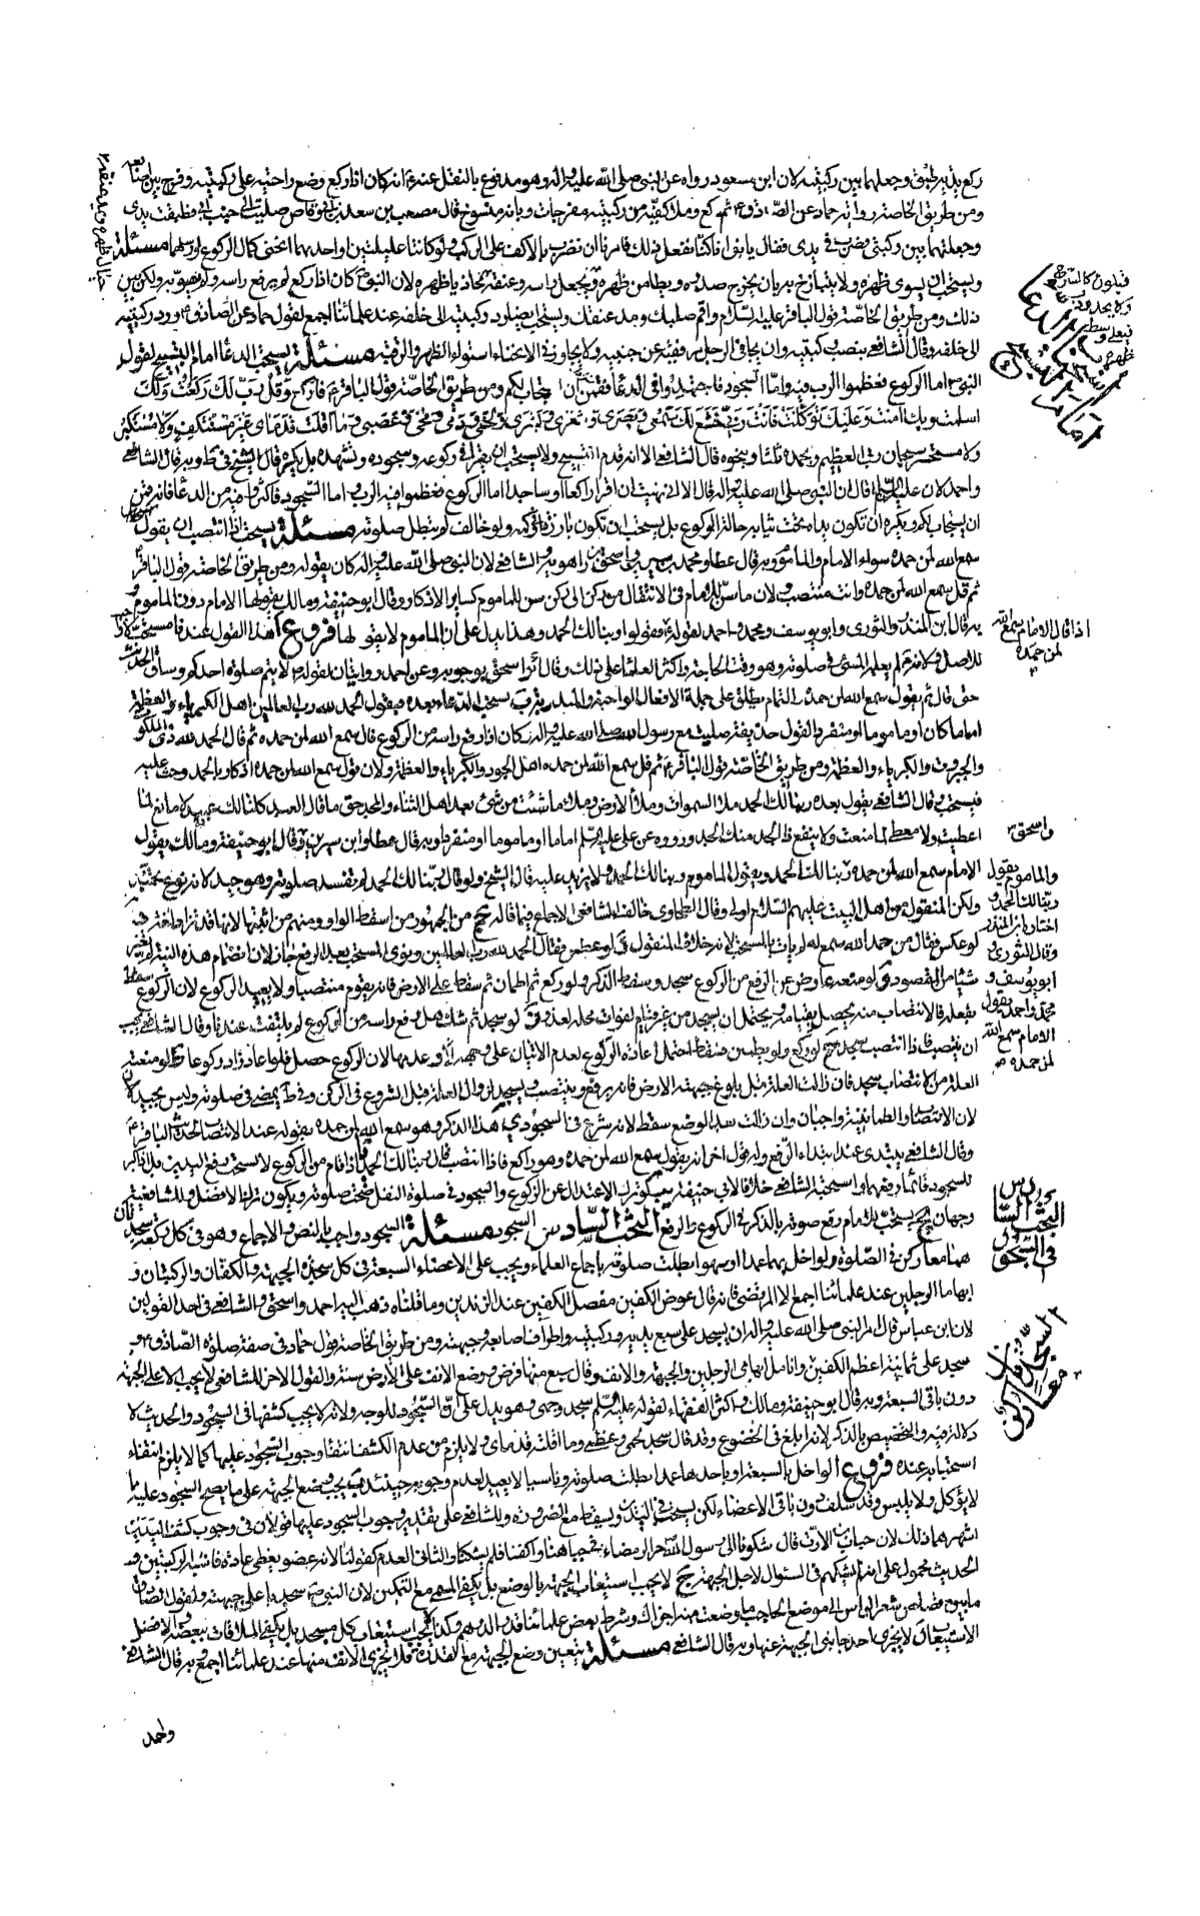 ركع يديه طبق وجعلهما بين ركبتيه لان ابن مسعود رواه عن النبي صلى الله عليه واله وهو مدفوع بالنقل عنه انه كان اذا ركع وضع راحتيه على ركبتيه وفرج بين اصابعه
ومن طريق الخاصة رواية حماد عن الصادق ثم ركع وملأ كفيه من ركبتيه مفرجات وبانه منسوخ قال مصعب بن سعد بن ابي وقاص صليت الى جنب ابي فطبقت يدي
وجعلتهما بين ركبتي فضرب في يدي فقال يا بني انا كنا نفعل ذلك فامرنا ان نضرب بالاكف على الركب ولو كانتا عليلتين او احديهما انحنى كمال الركوع وارسلهما مسئلة
ويستحب ان يسوي ظهره ولا يتبازخ به بان يخرج صدره ويطامن ظهره ويجعل راسه وعنقه بحذاء ظهره لان النبي كان اذا ركع لم يرفع راسه ولم يصوبه ولكن بين
ذلك ومن طريق الخاصة قول الباقر عليه السلام واقم صلبك ومد عنقك ويستحب رد ركبتيه الى خلفه عند علمائنا اجمع لقول حماد عن الصادق ورد ركبتيه
الى خلفه وقال الشافعي ينصب ركبتيه وان يجافي الرجل مرفقيه عن جنبيه ولا يجاوز في الانحناء استواء الظهر والرقبة مسئلة يستحب الدعا امام التسبيح لقول
النبي اما الركوع فعظموا الرب فيه واما السجود فاجتهدوا في الدعا فقمن ان يستجاب لكم ومن طريق الخاصة قول الباقر فاركع وقل رب لك ركعت ولك
اسلمت وبك امنت وعليك توكلت وانت ربي خشع لك سمعي وبصري وشعري وبشري ولحمي ودمي ومخي وعصبي وما اقلت قدماي غير مستنكف ولا مستكبر
ولا مستحسر سبحان ربي العظيم وبحمده ثلثا وبنحوه قال الشافعي الا انه قدم التسبيح ولا يستحب ان يقرأ في ركوعه وسجوده وتشهده بل يكره قال الشيخ في ط وبه قال الشافعي
واحمد لان عليا قال ان النبي صلى الله عليه واله قال الا اني نهيت ان اقرأ راكعا او ساجدا اما الركوع فعظموا فيه الرب واما السجود فاكثروا فيه من الدعا فانه قمن
ان يستجاب لكم ويكره ان تكون يداه تحت ثيابه حالة الركوع بل يستحب ان تكون بارزة او في كمه ولو خالف لم تبطل صلوته مسئلة يستحب اذا انتصب ان يقول
سمع الله لمن حمده سواء الامام والماموم وبه قال عطا ومحمد بن سيرين واسحق بن راهويه والشافعي لان النبي صلى الله عليه واله كان يقوله ومن طريق الخاصة قول الباقر
ثم قل سمع الله لمن حمده وانت منتصب ولان ما سن للامام في الانتقال من ركن الى ركن سن للماموم كساير الاذكار وقال ابو حنيفة ومالك يقولها الامام دون الماموم
وبه قال ابن المنذر والثوري وابو يوسف ومحمد واحمد لقوله فقولوا ربنا لك الحمد وهذا يدل على ان الماموم لا يقولها فروع ا هذا القول عندنا مستحب
للاصل ولانه لم يعلم المسيء في صلوته وهو وقت الحاجة واكثر العلما على ذلك وقال اسحق بوجوبه وعن احمد روايتان لقوله لا يتم صلوة احدكم وساق الحديث
حتى قال ثم يقول سمع الله لمن حمده والتمام يطلق على جملة الافعال الواجبة والمندوبة ب يستحب الدعاء بعده فيقول الحمد لله رب العالمين اهل الكبرياء والعظمة
اماما كان او ماموما او منفردا لقول حذيفة صليت مع رسول الله صلى الله عليه واله كان اذا رفع راسه من الركوع قال سمع الله لمن حمده ثم قال الحمد لله ذي الملكوت
والجبروت والكبرياء والعظمة ومن طريق الخاصة قول الباقر ثم قل سمع الله لمن حمده اهل الجود والكبرياء والعظمة ولان قول سمع الله لمن حمده اذكار بالحمد وحث عليه
فيستحب وقال الشافعي يقول بعده ربنا لك الحمد ملأ السموات وملأ الارض وملأ ما شئت من شئ بعد اهل الثناء والمجد حق ما قال العبد كلنا لك عبيد لا مانع لما
اعطيت ولا معطي لما منعت ولا ينفع ذا الجد منك الجد ورووه عن علي عليه السلام اماما او ماموما او منفردا وبه قال عطا وابن سيرين وقال ابو حنيفة ومالك يقول
الامام سمع الله لمن حمده ربنا لك الحمد ويقول الماموم ربنا لك الحمد ولا يزيد عليه قال الشيخ ولو قال ربنا لك الحمد لم تفسد صلوته وهو جيد لانه نوع تحميد
ولكن المنقول عن اهل البيت عليهم السلام اولى وقال الطحاوي خالف الشافعي الاجماع فيما قاله ج من الجمهور من اسقط الواو ومنهم من اثبتها لانها قد تزاد لغة د
لو عكس فقال من حمد الله سمع له لم يات بالمستحب لانه خلاف المنقول ه لو عطس فقال الحمد لله رب العالمين ونوى المستحب بعد الرفع جاز لان انضمام هذه النية لا تغير
شيئا من المقصود و لو منعه عارض عن الرفع من الركوع سجد وسقط الذكر ولو ركع ثم اطمان ثم سقط على الارض فانه يقوم منتصبا ولا يعيد الركوع لان الركوع
بفعله فالانتصاب منه يحصل بقيامه ويحتمل ان يسجد من غير قيام لفوات محله لعذر ز لو سجد ثم شك هل رفع راسه من الركوع لم يلتفت عندنا وقال الشافعي يجب
ان ينتصب فاذا انتصب سجد ح لو ركع ولم يطمئن فسقط احتمل اعادة الركوع لعدم الاتيان على وجهه وعدمها لان الركوع حصل فلو اعاد زاد ركوعا ط لو منعته
العلة من الانتصاب سجد فان زالت العلة قبل بلوغ جبهته الارض فانه يرفع وينتصب ويسجد لزوال العلة قبل الشروع في الركن وفي ط يمضي في صلوته وليس بجيد
لان الانتصاب والطمانينة واجبان وان زالت بعد الوضع سقط لانه شرع في السجود ي هذا الذكر وهو سمع الله لمن حمده يقوله عند الانتصاب لحديث الباقر
وقال الشافعي يبتدئ عند ابتداء الرفع وله قول اخر انه يقول سمع الله لمن حمده وهو راكع فاذا انتصب قال ربنا لك الحمد يا اذا قام من الركوع لا يستحب رفع اليدين بل يكبر
للسجود قائما رفعهما واستحبه الشافعي خلافا لابي حنيفة يب لو ترك الاعتدال عن الركوع والسجود في صلوة النفل صحت صلوته ويكون ترك الافضل وللشافعية
وجهان يج يستحب للامام رفع صوته بالذكر في الركوع والرفع البحث السادس السجود مسئلة السجود واجب بالنص والاجماع وهو في كل ركعة سجدتان
هما معا ركن في الصلوة ولو اخل بهما عمدا او سهوا بطلت صلوته باجماع العلماء ويجب على الاعضاء السبعة في كل سجدة الجبهة والكفان والركبتان و
ابهاما الرجلين عند علمائنا اجمع الا المرتضى فانه قال عوض الكفين مفصل الكفين عند الزندين وما قلناه ذهب اليه احمد واسحق والشافعي في احد القولين
لان ابن عباس قال امر النبي صلى الله عليه واله ان يسجد على سبع يديه وركبتيه واطراف اصابعه وجبهته ومن طريق الخاصة قول حماد في صفة صلوة الصادق و
سجد على ثمانية اعظم الكفين وانامل ابهامي الرجلين والجبهة والانف وقال سبع منها فرض ووضع الانف على الارض سنة والقول الاخر للشافعي لا يجب الا على الجبهة
دون باقي السبعة وبه قال ابو حنيفة ومالك واكثر الفقهاء لقوله عليه السلام سجد وجهي وهو يدل على ان السجود للوجه ولانه لا يجب كشفها في السجود والحديث لا
دلالة فيه والتخصيص بالذكر لانه ابلغ في الخضوع وقد قال سجد لحمي وعظمي وما اقلته قدماي ولا يلزم من عدم الكشف انتفا وجوب السجود عليها كما لا يلزم انتفاء
استحبابه عنده فروع ا لو اخل بالسبعة او باحدها عمدا بطلت صلوته وناسيا لا يعيد لعدم وجوبه حينئذ ب يجب وضع الجبهة على ما يصح السجود عليه مما
لا يؤكل ولا يلبس وقد سلف دون باقي الاعضاء لكن يستحب في اليدين ويسقط مع الضرورة وللشافعي على تقدير وجوب السجود عليها قولان في وجوب كشف اليدين
اشهرهما ذلك لان خباب بن الارت قال شكونا الى رسول الله حر الرمضاء في جباهنا واكفنا فلم يشكنا والثاني العدم كقولنا لانه عضو يغطى عادة فاشبه الركبتين و
الحديث محمول على انه لم يشكهم في السئوال لاجل الجبهة ج لا يجب استيعاب الجبهة بالوضع بل يكفي المسمى مع التمكين لان النبي سجد باعلى جبهته ولقول الصادق
ما بين قصاص شعر الراس الى موضع الحاجب ما وضعت منه اجزاك وشرط بعض علمائنا قدر الدرهم وكذا لا يجب استيعاب كل مسجد بل يكفي الملاقات ببعضه والافضل
الاستيعاب د لا يجزي احد جانبي الجبهة عنها وبه قال الشافعي مسئلة يتعين وضع الجبهة مع القدرة فلا يجزي الانف عنها عند علمائنا اجمع وبه قال الشافعي
واحمد
استحباب الدعا
امام التسبيح
اذا قال الامام سمع الله
لمن حمده
واسحق
والماموم يقول
ربنا لك الحمد و
اختاره ابن المنذر
وقال الثوري و
ابو يوسف و
محمد واحمد يقول
الامام سمع الله
لمن حمده
البحث السادس
في السجود
السجدتان
معا ركن